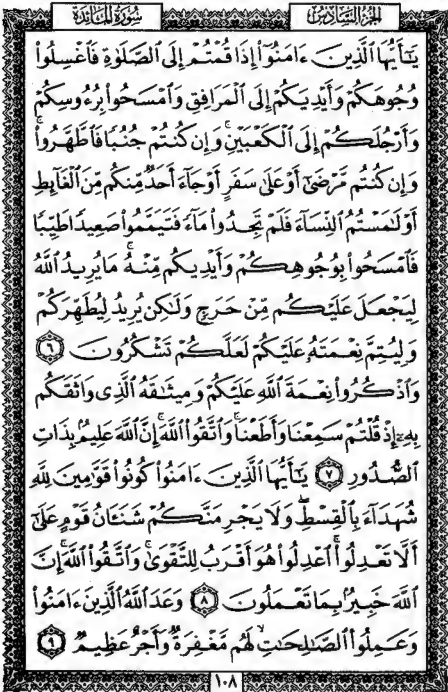 سُورَةُ المَائِدَة
الجُزْءُ السَّادِسُ
يَٰٓأَيُّهَا ٱلَّذِينَ ءَامَنُوٓا۟ إِذَا قُمْتُمْ إِلَى ٱلصَّلَوٰةِ فَٱغْسِلُوا۟
وُجُوهَكُمْ وَأَيْدِيَكُمْ إِلَى ٱلْمَرَافِقِ وَٱمْسَحُوا۟ بِرُءُوسِكُمْ
وَأَرْجُلَكُمْ إِلَى ٱلْكَعْبَيْنِ ۚ وَإِن كُنتُمْ جُنُبًا فَٱطَّهَّرُوا۟ ۚ
وَإِن كُنتُم مَّرْضَىٰٓ أَوْ عَلَىٰ سَفَرٍ أَوْ جَآءَ أَحَدٌ مِّنكُم مِّنَ ٱلْغَآئِطِ
أَوْ لَٰمَسْتُمُ ٱلنِّسَآءَ فَلَمْ تَجِدُوا۟ مَآءً فَتَيَمَّمُوا۟ صَعِيدًا طَيِّبًا
فَٱمْسَحُوا۟ بِوُجُوهِكُمْ وَأَيْدِيكُم مِّنْهُ ۚ مَا يُرِيدُ ٱللَّهُ
لِيَجْعَلَ عَلَيْكُم مِّنْ حَرَجٍ وَلَٰكِن يُرِيدُ لِيُطَهِّرَكُمْ
وَلِيُتِمَّ نِعْمَتَهُۥ عَلَيْكُمْ لَعَلَّكُمْ تَشْكُرُونَ ٦
وَٱذْكُرُوا۟ نِعْمَةَ ٱللَّهِ عَلَيْكُمْ وَمِيثَٰقَهُ ٱلَّذِى وَاثَقَكُم
بِهِۦٓ إِذْ قُلْتُمْ سَمِعْنَا وَأَطَعْنَا ۖ وَٱتَّقُوا۟ ٱللَّهَ ۚ إِنَّ ٱللَّهَ عَلِيمٌۢ بِذَاتِ
ٱلصُّدُورِ ٧ يَٰٓأَيُّهَا ٱلَّذِينَ ءَامَنُوا۟ كُونُوا۟ قَوَّٰمِينَ لِلَّهِ
شُهَدَآءَ بِٱلْقِسْطِ ۖ وَلَا يَجْرِمَنَّكُمْ شَنَـَٔانُ قَوْمٍ عَلَىٰٓ
أَلَّا تَعْدِلُوا۟ ۚ ٱعْدِلُوا۟ هُوَ أَقْرَبُ لِلتَّقْوَىٰ ۖ وَٱتَّقُوا۟ ٱللَّهَ ۚ إِنَّ
ٱللَّهَ خَبِيرٌۢ بِمَا تَعْمَلُونَ ٨ وَعَدَ ٱللَّهُ ٱلَّذِينَ ءَامَنُوا۟
وَعَمِلُوا۟ ٱلصَّٰلِحَٰتِ ۙ لَهُم مَّغْفِرَةٌ وَأَجْرٌ عَظِيمٌ ٩
١٠٨